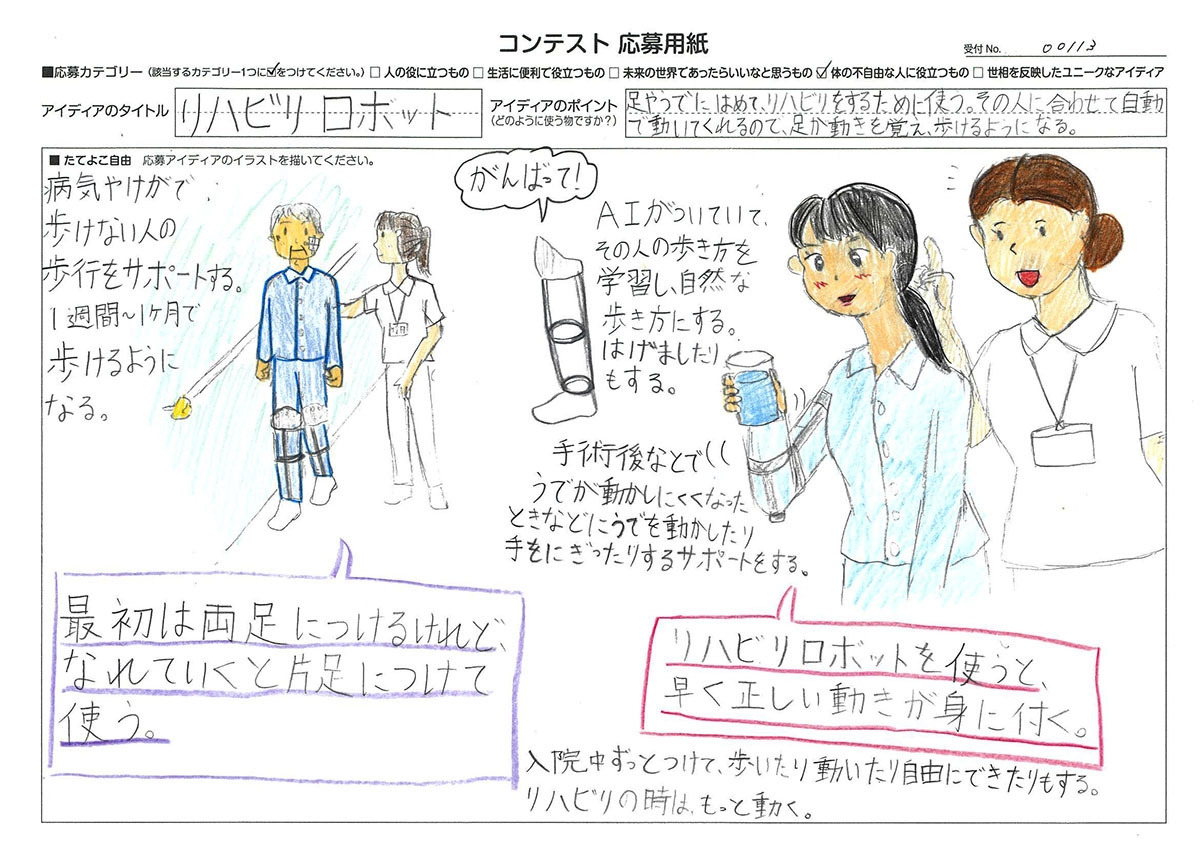 コンテスト 応募用紙
受付 No. 00113
■応募カテゴリー（該当するカテゴリー1つに☑をつけてください。）□ 人の役に立つもの □ 生活に便利で役立つもの □ 未来の世界であったらいいなと思うもの ☑ 体の不自由な人に役立つもの □ 世相を反映したユニークなアイディア
アイディアのタイトル
リハビリロボット
アイディアのポイント
（どのように使う物ですか？）
足やうでに はめて、リハビリをするために使う。その人に合わせて自動
で動いてくれるので、足が動きを覚え、歩けるようになる。
■ たてよこ自由 応募アイディアのイラストを描いてください。
病気やけがで
歩けない人の
歩行をサポートする。
1週間〜1ヶ月で
歩けるように
なる。
がんばって！
AIがついていて、
その人の歩き方を
学習し、自然な
歩き方にする。
はげましたり
もする。
手術後などで
うでが動かしにくくなった
ときなどにうでを動かしたり
手をにぎったりするサポートをする。
最初は両足につけるけれど、
なれていくと片足につけて
使う。
リハビリロボットを使うと、
早く正しい動きが身に付く。
入院中ずっとつけて、歩いたり動いたり自由にできたりもする。
リハビリの時は、もっと動く。